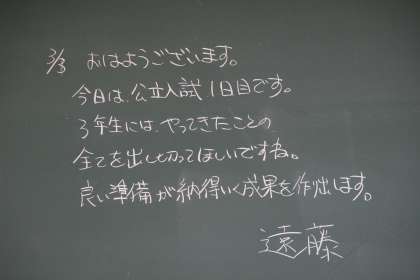 3/3 おはようございます。
今日は、公立入試1日目です。
3年生には、やってきたことの
全てを出し切ってほしいですね。
良い準備が納得いく成果を作り出します。
遠藤